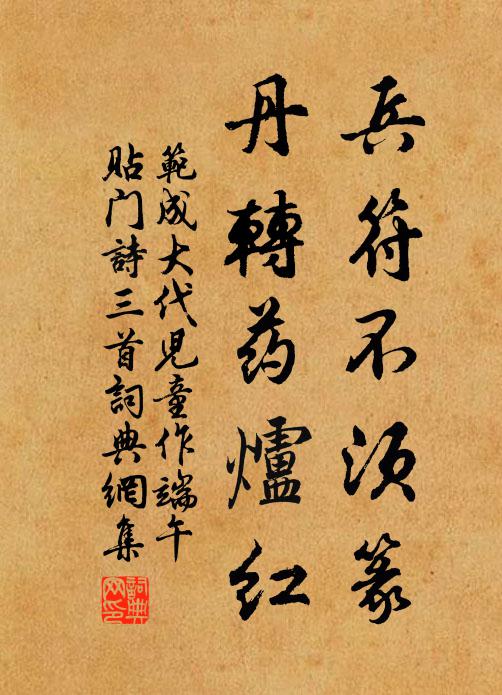 兵符不须篆
丹轉药爐红
範成大代児童作端午
貼门詩三首詞典網集
詞典网印